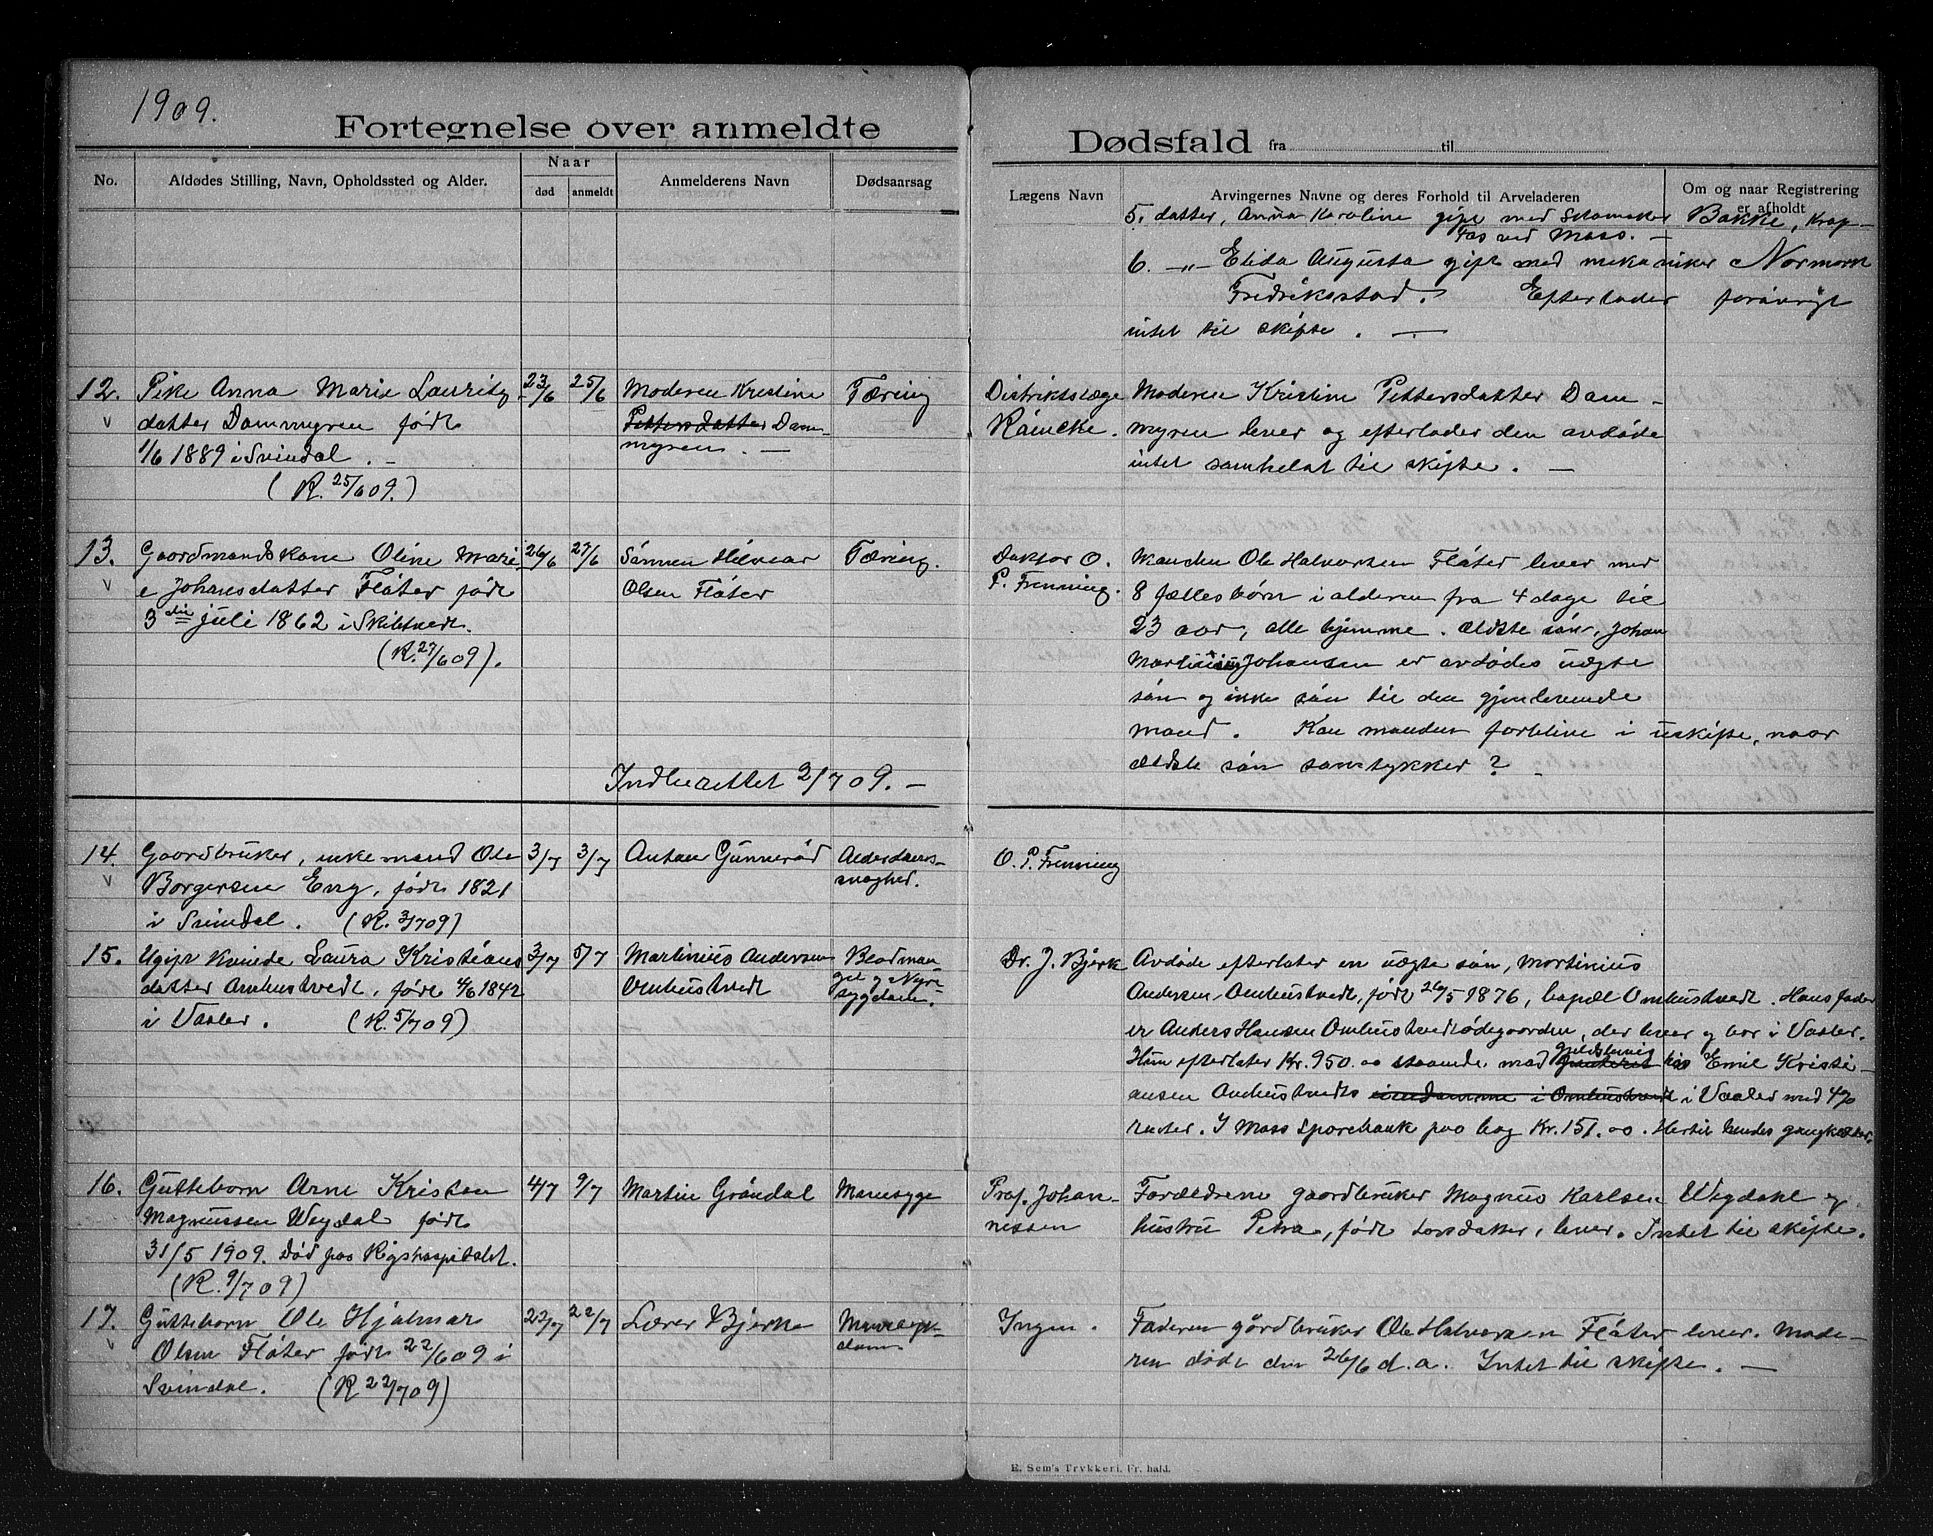 1909.
Fortegnelse over anmeldte
Dødsfald fra til
No.
Afdødes Stilling, Navn, Opholdssted og Alder.
Naar
død
anmeldt
Anmelderens Navn
Dødsaarsag
Lægens Navn
Arvingernes Navne og deres Forhold til Arveladeren
Om og naar Registrering
er afholdt
5. datter, Anna Karoline gift med Skomaker Bakke, Krap-
fos ved Moss. -
6. -"- Elida Augusta gift med mekaniker Normann
Fredrikstad. Efterlader forøvrigt
intet til skifte. -
12. Pike Anna Marie Lauritz-
datter Dammyren født
1/6 1889 i Svindal. -
(R. 25/6 09.)
23/6
25/6
Moderen Kristine
Pettersdatter Dam-
myren. -
Tæring
Distriktslæge
Råncke.
Moderen Kristine Pettersdatter Dam-
myren lever og efterlader den avdøde
intet samhelst til skifte. -
13. Gaardmandskone Oline Marie
Johansdatter Fløter født
3die juli 1862 i Skibtvedt.
(R. 27/6 09).
26/6
27/6
Sønnen Hilmar
Olsen Fløter
Tæring.
Doktor O.
P. Frenning.
Manden Ole Halvorsen Fløter lever med
8 fællesbørn i alderen fra 4 dage til
23 aar, alle hjemme. Ældste søn, Johan
Martinius Johansen er avdødes uægte
søn og ikke søn til den gjenlevende
mand. Kan manden forblive i uskifte, naar
ældste søn samtykker?
Indberettet 2/7 09. -
14. Gaardbruker, enkemand Ole
Borgersen Eng, født 1821
i Svindal. (R. 3/7 09)
3/7
3/7
Anton Gunnerød
Alderdoms-
svaghed.
O. P. Frenning
15. Ugift kvinde Laura Kristians
datter Omhustvedt, født 4/6 1842
i Vaaler. (R. 5/7 09)
3/7
5/7
Martinius Andersen
Omhustvedt
Blodman
gel og Nyre
sygdom.
Dr. J. Bjerk
Avdøde efterlater en uægte søn, Martinius
Andersen Omhustvedt, født 26/5 1876, bopæl Omhustvedt. Hans fader
er Anders Hansen Omhustvedtødegaarden, der lever og bor i Vaaler.
Hun efterlater Kr. 950.00 staaende mod gjeldsbrevis hos Emil Kristi-
ansen Omhustvedt eiendomme i Omhustvedt i Vaaler med 4%
renter. I Moss Sparebank paa bog Kr. 151.00. Hertil hendes gangklæder.
16. Guttebarn Arne Kristian
Magnussen Wegdal født
31/5 1909. Død paa Rigshospitalet.
(R. 9/7 09)
4/7
9/7
Martin Grøndal
Mavesyge
Prof. Johan-
nessen
Forældrene gaardbruker Magnus Karlsen Wegdahl og
hustru Petra, født Larsdatter, lever. Intet til skifte.
17. Guttebarn Ole Hjalmar
Olsen Fløter født 22/6 09 i
Svindal. (R 22/7 09)
22/7
22/7
Lærer Bjerke
Mavesyk-
dom
Ingen.
Faderen gårdbruker Ole Halvorsen Fløter lever. Mode-
ren døde den 26/6 d.a. Intet til skifte. -
E. Sem's Trykkeri, Fr. hald.